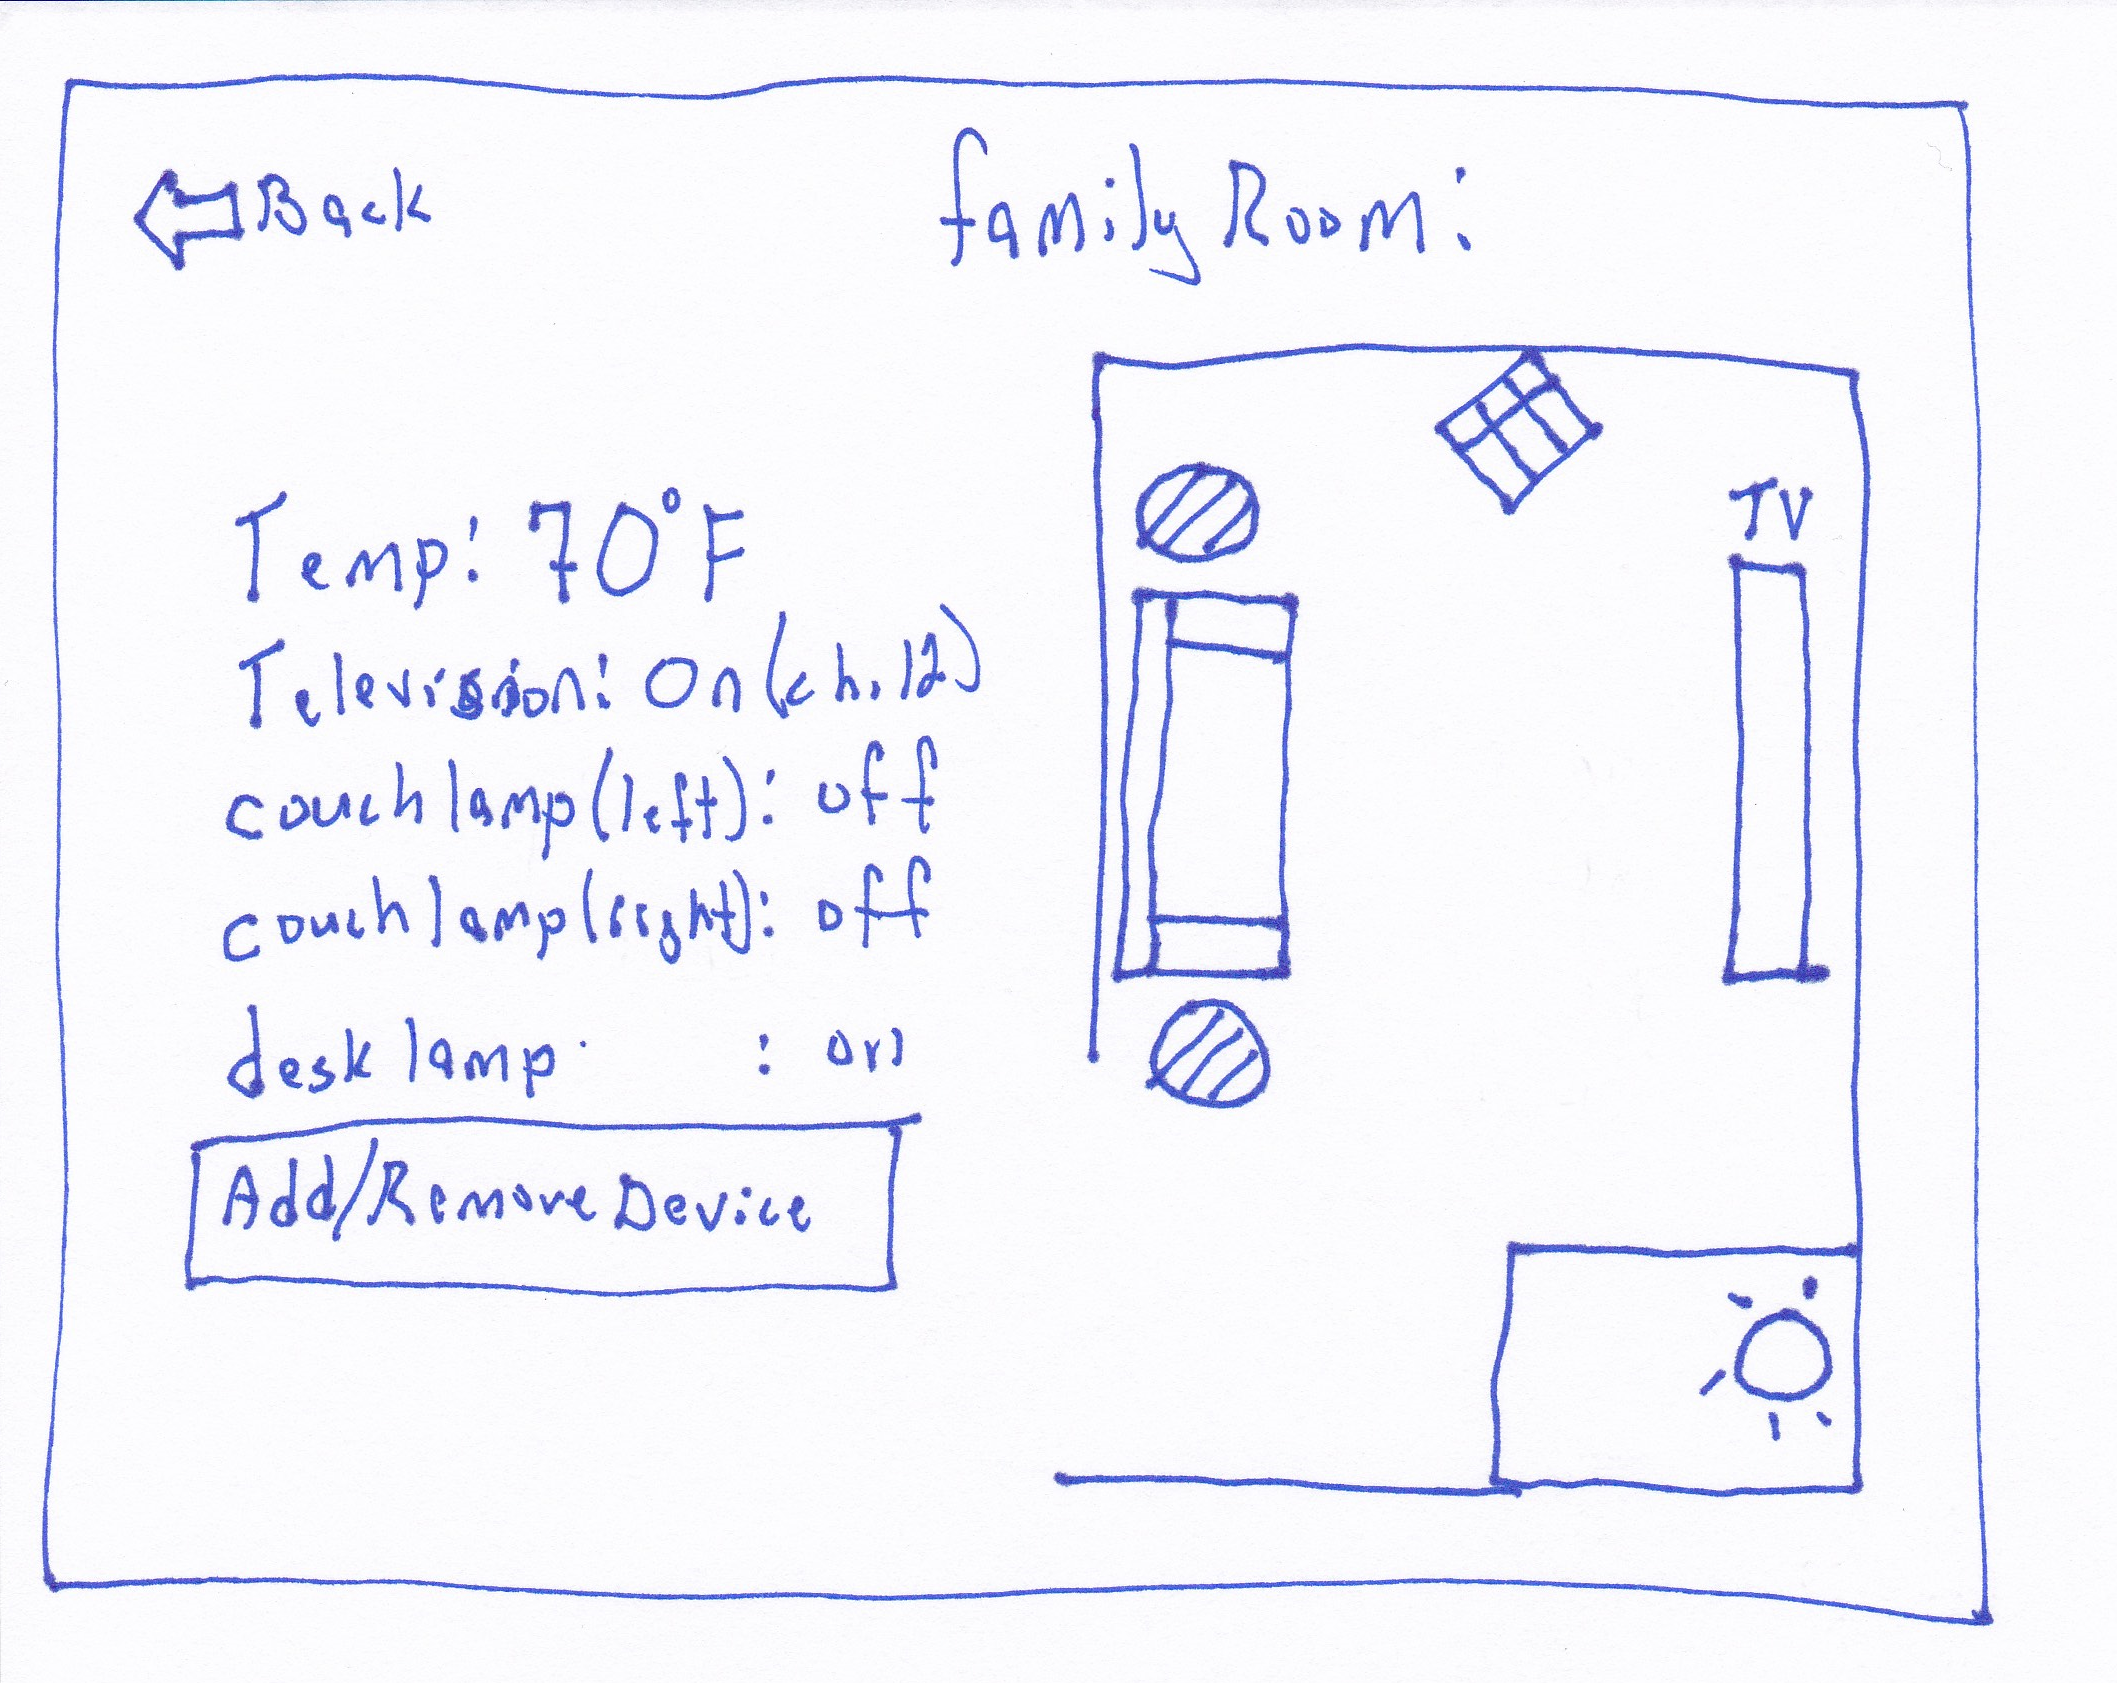 Back
family Room:
Temp: 70°F
TV
Television: On (ch. 12)
couch lamp (left): off
couch lamp (right): off
desk lamp : on
Add/Remove Device